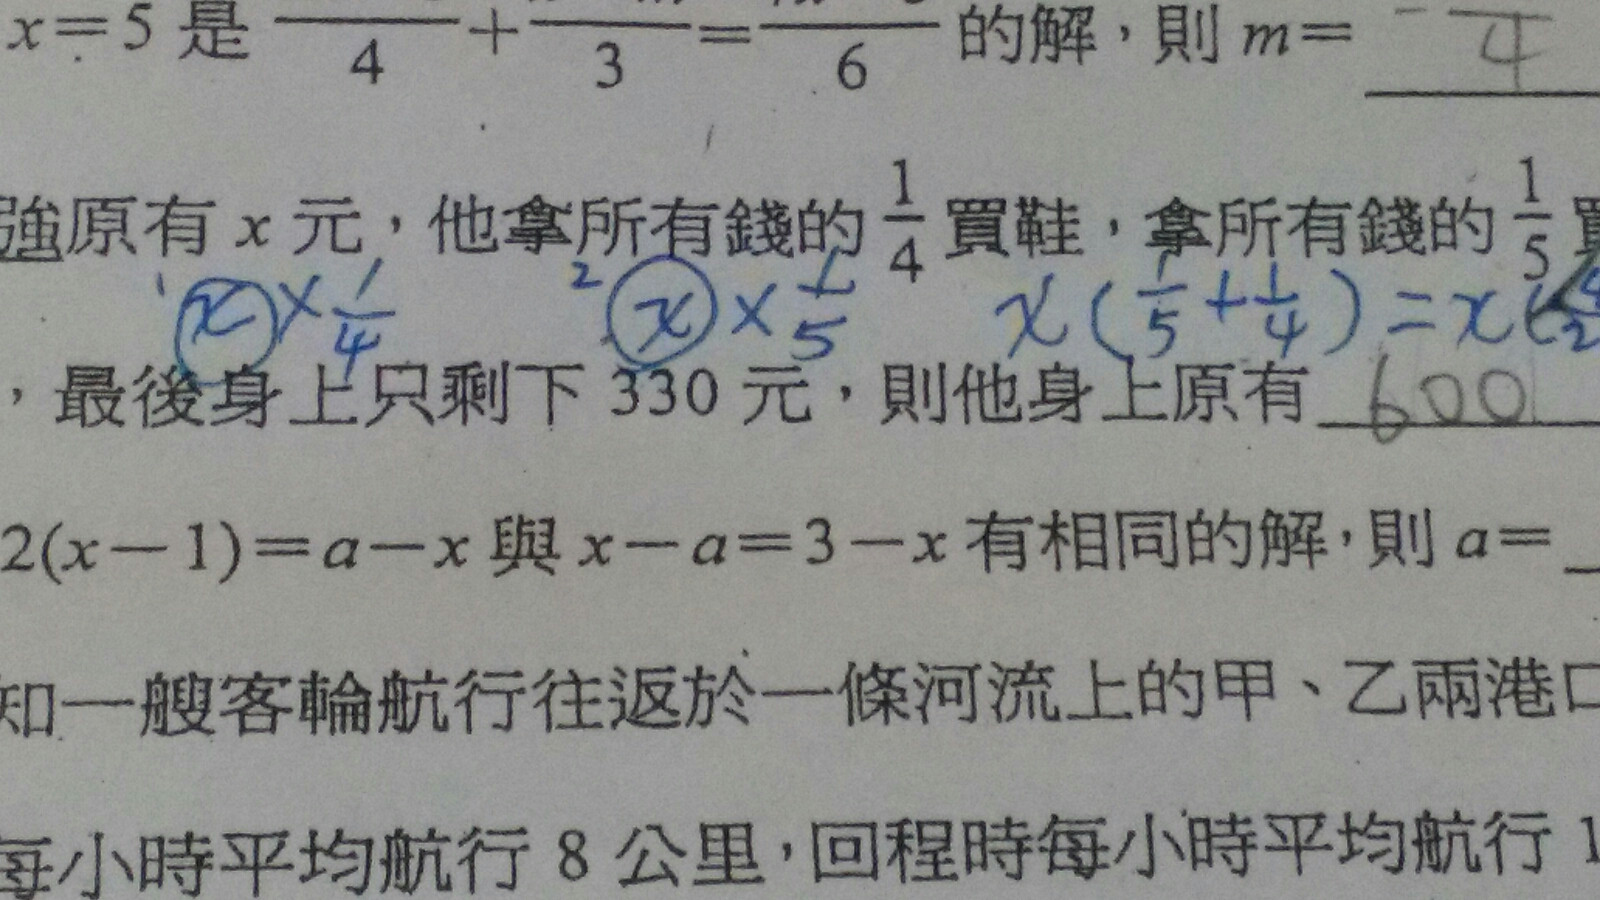 x=5 是 4 + 3 = 6 的解，則 m= 4
強原有 x 元，他拿所有錢的 1/4 買鞋，拿所有錢的 1/5 買
1 x×1/4 2 x×1/5 x(1/5+1/4)=x(
，最後身上只剩下 330 元，則他身上原有 600
2(x－1)=a－x 與 x－a=3－x 有相同的解，則 a=
知一艘客輪航行往返於一條河流上的甲、乙兩港口
每小時平均航行 8 公里，回程時每小時平均航行 1